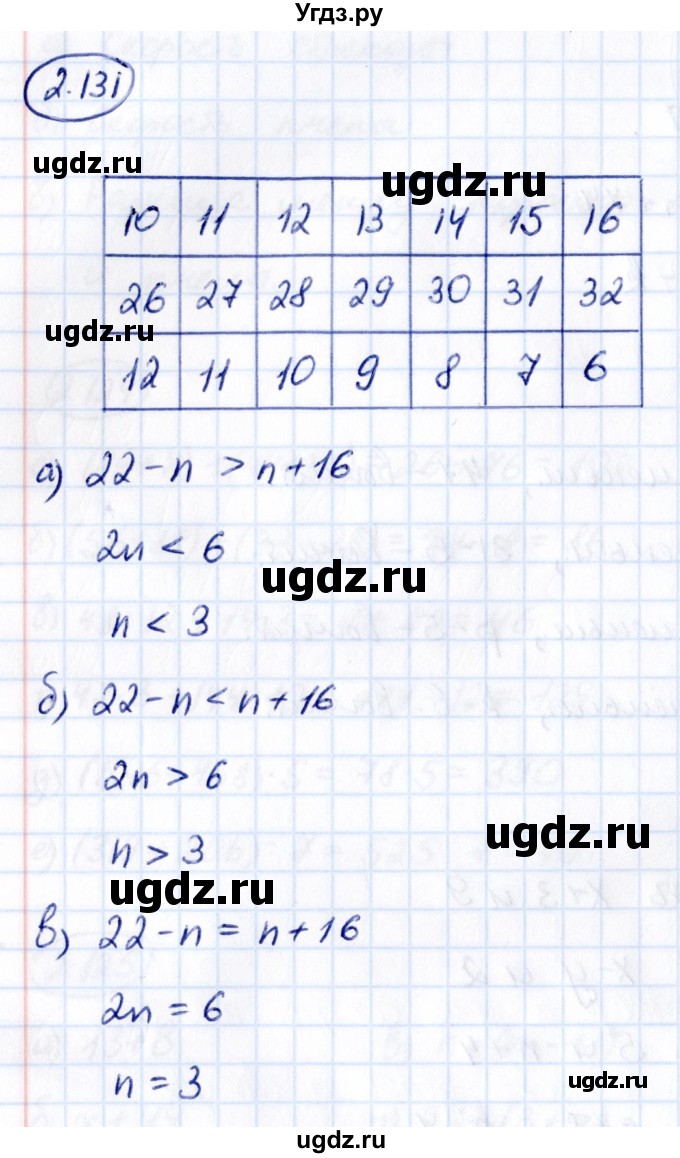 Угдз.ру
2.131
ugdz.ru
ugdz.ru
10 11 12 13 14 15 16
26 27 28 29 30 31 32
ugdz.ru
12 11 10 9 8 7 6
а) 22 - n > n + 16
2n < 6
ugdz.ru
n < 3
б) 22 - n < n + 16
2n > 6
ugdz.ru
n > 3
ugdz.ru
в) 22 - n = n + 16
2n = 6
n = 3
ugdz.ru
ugdz.ru